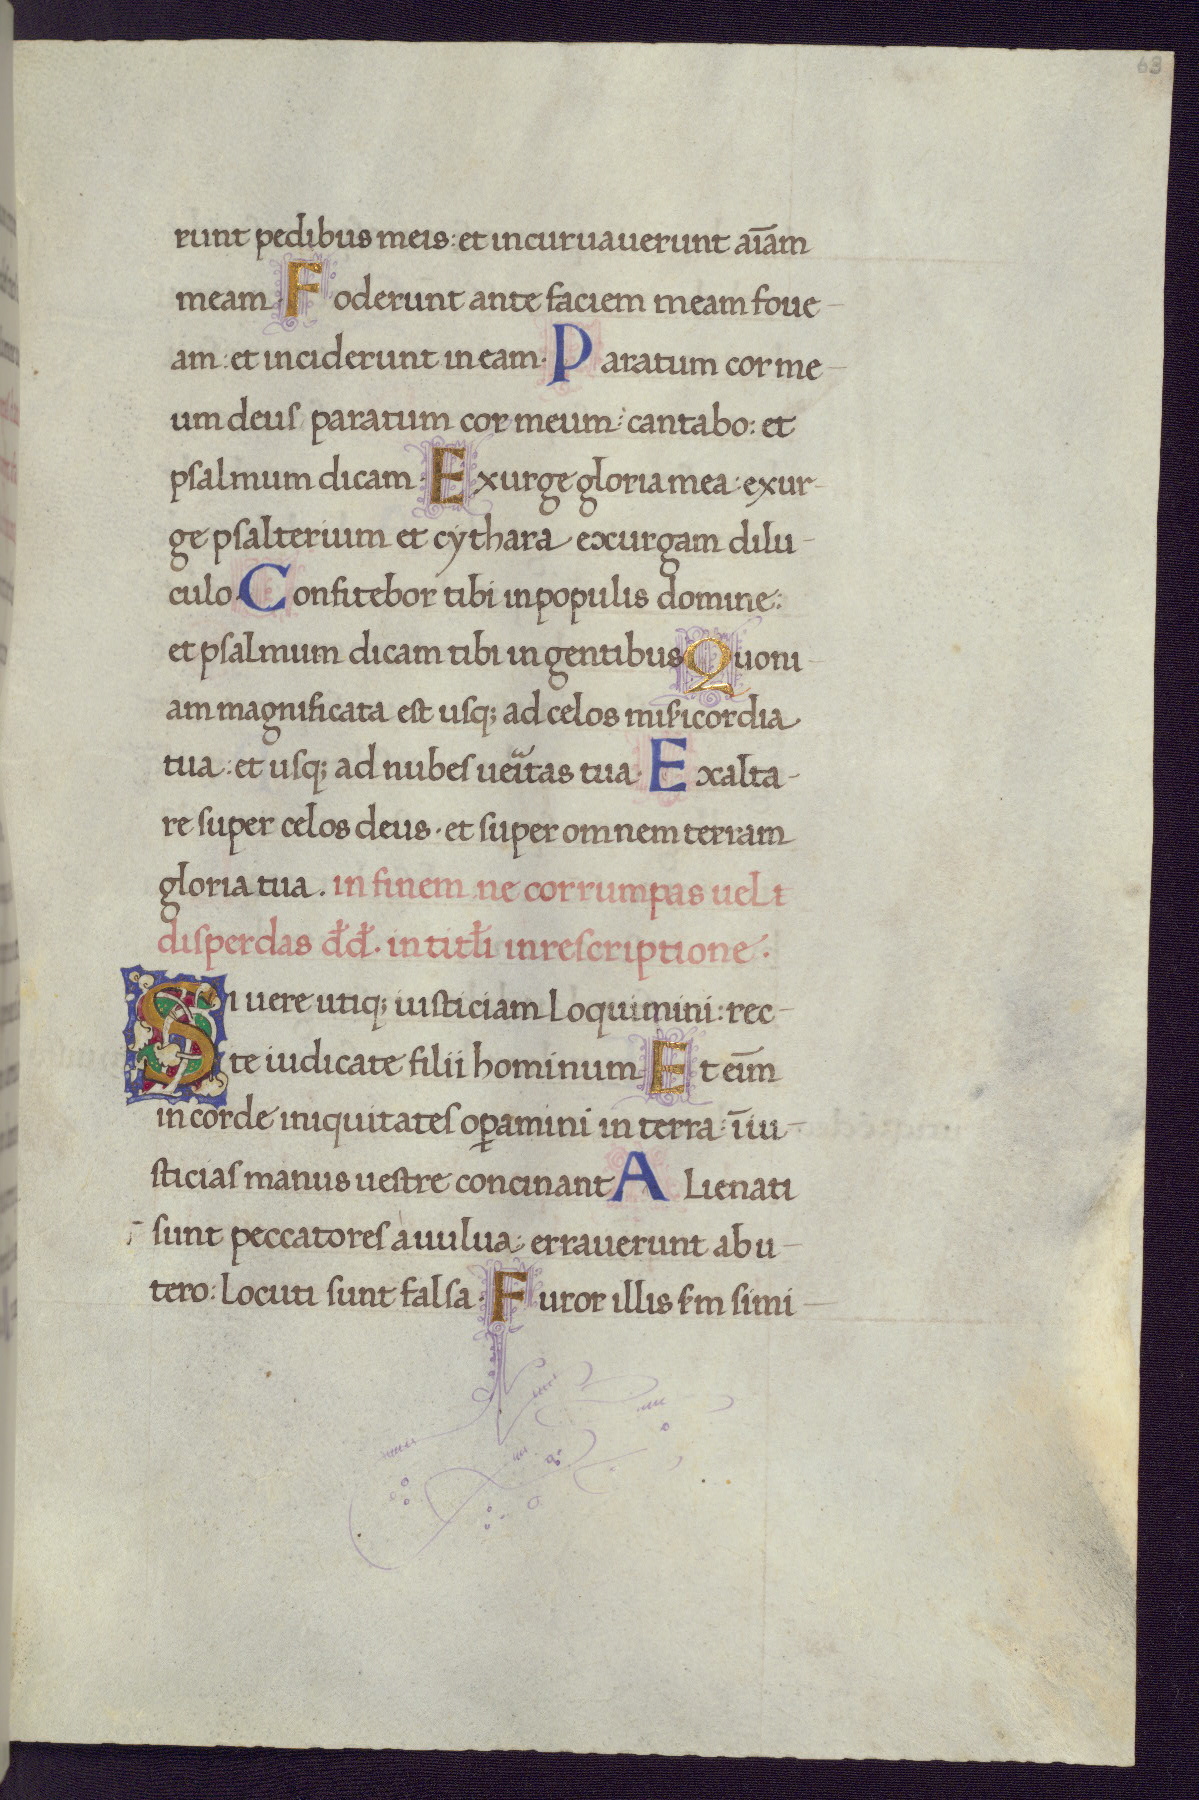 63
runt pedibus meis: et incuruauerunt aīam
meam. Foderunt ante faciem meam foue-
am: et inciderunt in eam. Paratum cor me-
um deuſ paratum cor meum: cantabo: et
pſalmum dicam. Exurge gloria mea: exur-
ge pſalterium et cythara excurgam dilu-
culo. Confitebor tibi in populis domine:
et pſalmum dicam tibi in gentibus Quoni-
am magnificata est uſq; ad celos mis̄icordia
tua: et uſq; ad nubeſ ueītas tua. Exalta-
re ſuper celos deus. et ſuper omnem terram
gloria tua. in finem ne corrumpas uel t
diſperdas đđ. in titłi in reſcriptione.
Si uere utiq; iuſticiam loquimini: rec-
te iudicate filii hominum Et eīm
in corde iniquitateſ oꝑamini in terra: īiu-
ſticiaſ manus ueſtre concinant Alienati
ſunt peccatoreſ a uulua: errauerunt ab u-
tero: locuti ſunt falſa. Furor illis ſm̄ ſimi-